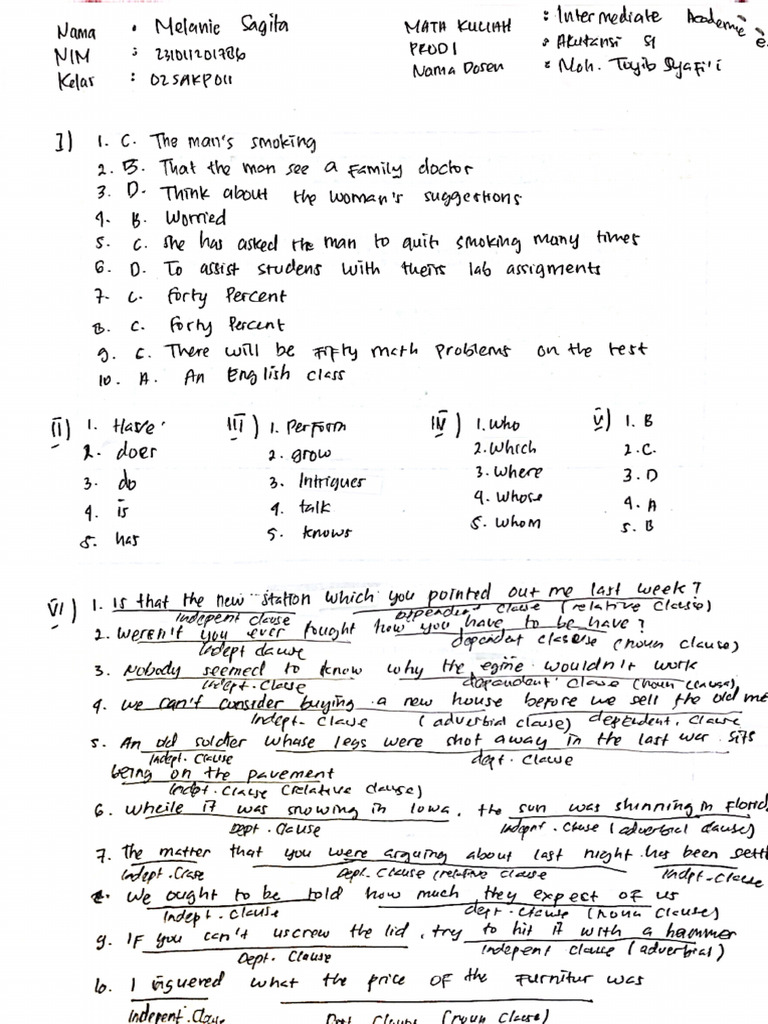 Nama : Melanie Sagita
NIM : 231011201786
Kelas : 02SAKP011
MATA KULIAH : Intermediate Academic E.
PRODI : Akutansi S1
Nama Dosen : Moh. Toyib Syafi'i
I) 1. C. The man's smoking
2. B. That the man see a family doctor
3. D. Think about the woman's suggestions
4. B. Worried
5. C. She has asked the man to quit smoking many times
6. D. To assist studens with theirs lab assigments
7. C. Forty Percent
8. C. Forty Percent
9. C. There will be Fifty math problems on the test
10. A. An English class
II) 1. Have
2. does
3. do
4. is
5. has
III) 1. Perform
2. grow
3. Intrigues
4. talk
5. knows
IV) 1. Who
2. Which
3. Where
4. Whose
5. Whom
V) 1. B
2. C.
3. D
4. A
5. B
VI) 1. Is that the new station which you pointed out me last week?
Indepent clause dependent clause (relative clause)
2. Weren't you ever tought how you have to be have?
Indept clause dependent clause (noun clause)
3. Nobody seemed to know why the egine wouldn't work
Indept. Clause dependent clause (noun clause)
4. We can't consider buying a new house before we sell the old
Indept- Clause (adverbial clause) dependent. clause
5. An old soldier whase legs were shot away in the last war sits
Indept. Clause dept. Clause
being on the pavement
Indpt. Clause (relative clause)
6. Wheile it was snowing in Iowa, the sun was shinning in Florid
Dept. Clause Indepnt. Clause (adverbial clause)
7. The matter that you were arguing about last night has been sett
Indept. Clase Dept. Clause (relative clause Indpt. Clause
8. We ought to be told how much they expect of us
Indept. Clause dept. Clause (noun clause)
9. IF you can't uscrew the lid, try to hit it with a hammer
Dept. Clause Indepent clause (adverbial)
10. I niguered what the price of the furnitur was
Indepent. Clause Dept. Clause (noun clause)